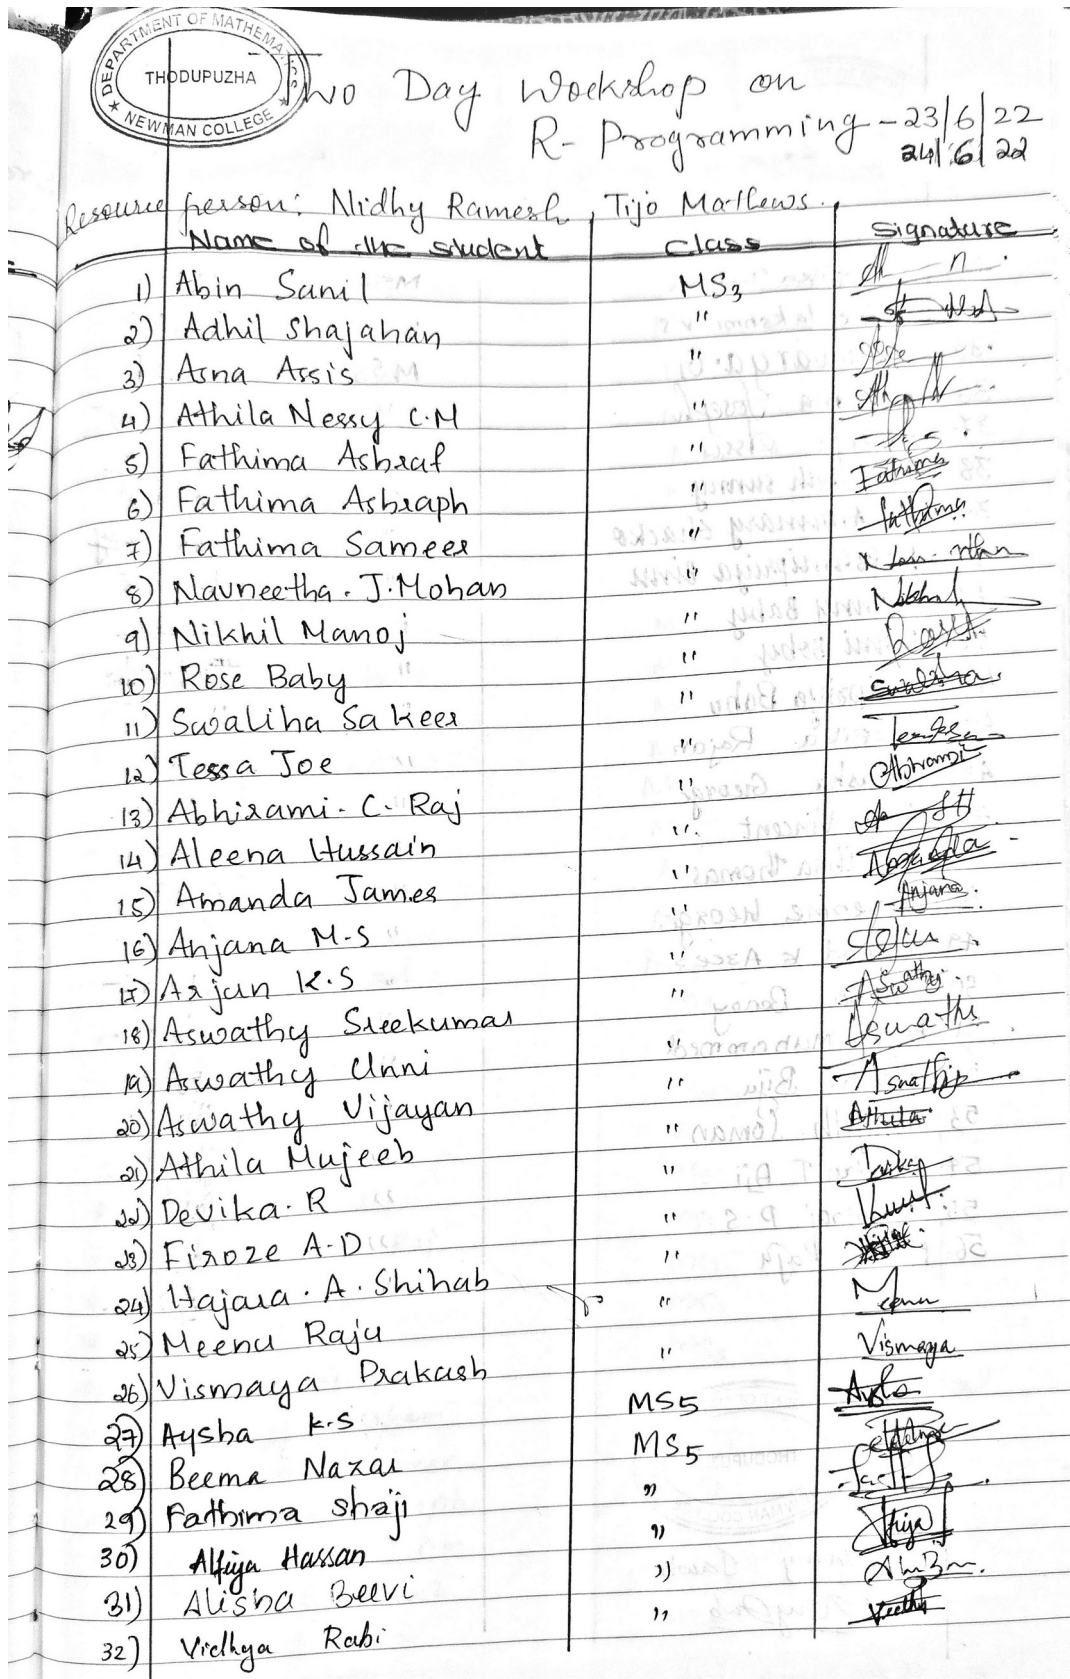 DEPARTMENT OF MATHEMATICS
THODUPUZHA
NEWMAN COLLEGE
Two Day Workshop on
R- Programming - 23/6/22
24/6/22
Resource person: Nidhy Ramesh, Tijo Mathews.
Name of the student Class Signature
1) Abin Sanil MS3
2) Adhil Shajahan "
3) Asna Assis "
4) Athila Nessy C.M "
5) Fathima Ashraf "
6) Fathima Ashraph " Fathima
7) Fathima Sameer " fathima
8) Navneetha. J. Mohan "
9) Nikhil Manoj " Nikhil
10) Rose Baby "
11) Swaliha Sakeer " Swaliha
12) Tessa Joe "
13) Abhirami. C. Raj " Abhirami
14) Aleena Hussain "
15) Amanda James "
16) Anjana M.S " Anjana
17) Arjun K.S "
18) Aswathy Sreekumar " Aswathy
19) Aswathy Unni " Aswathy
20) Aswathy Vijayan " Aswathy
21) Athila Mujeeb " Athila
22) Devika. R "
23) Firoze A.D "
24) Hajara. A. Shihab "
25) Meenu Raju " Meenu
26) Vismaya Prakash " Vismaya
27) Aysha K.S MS5
28) Beema Nazar MS5
29) Fathima Shaji "
30) Alfiya Hassan "
31) Alisha Beevi "
32) Vidhya Rabi "